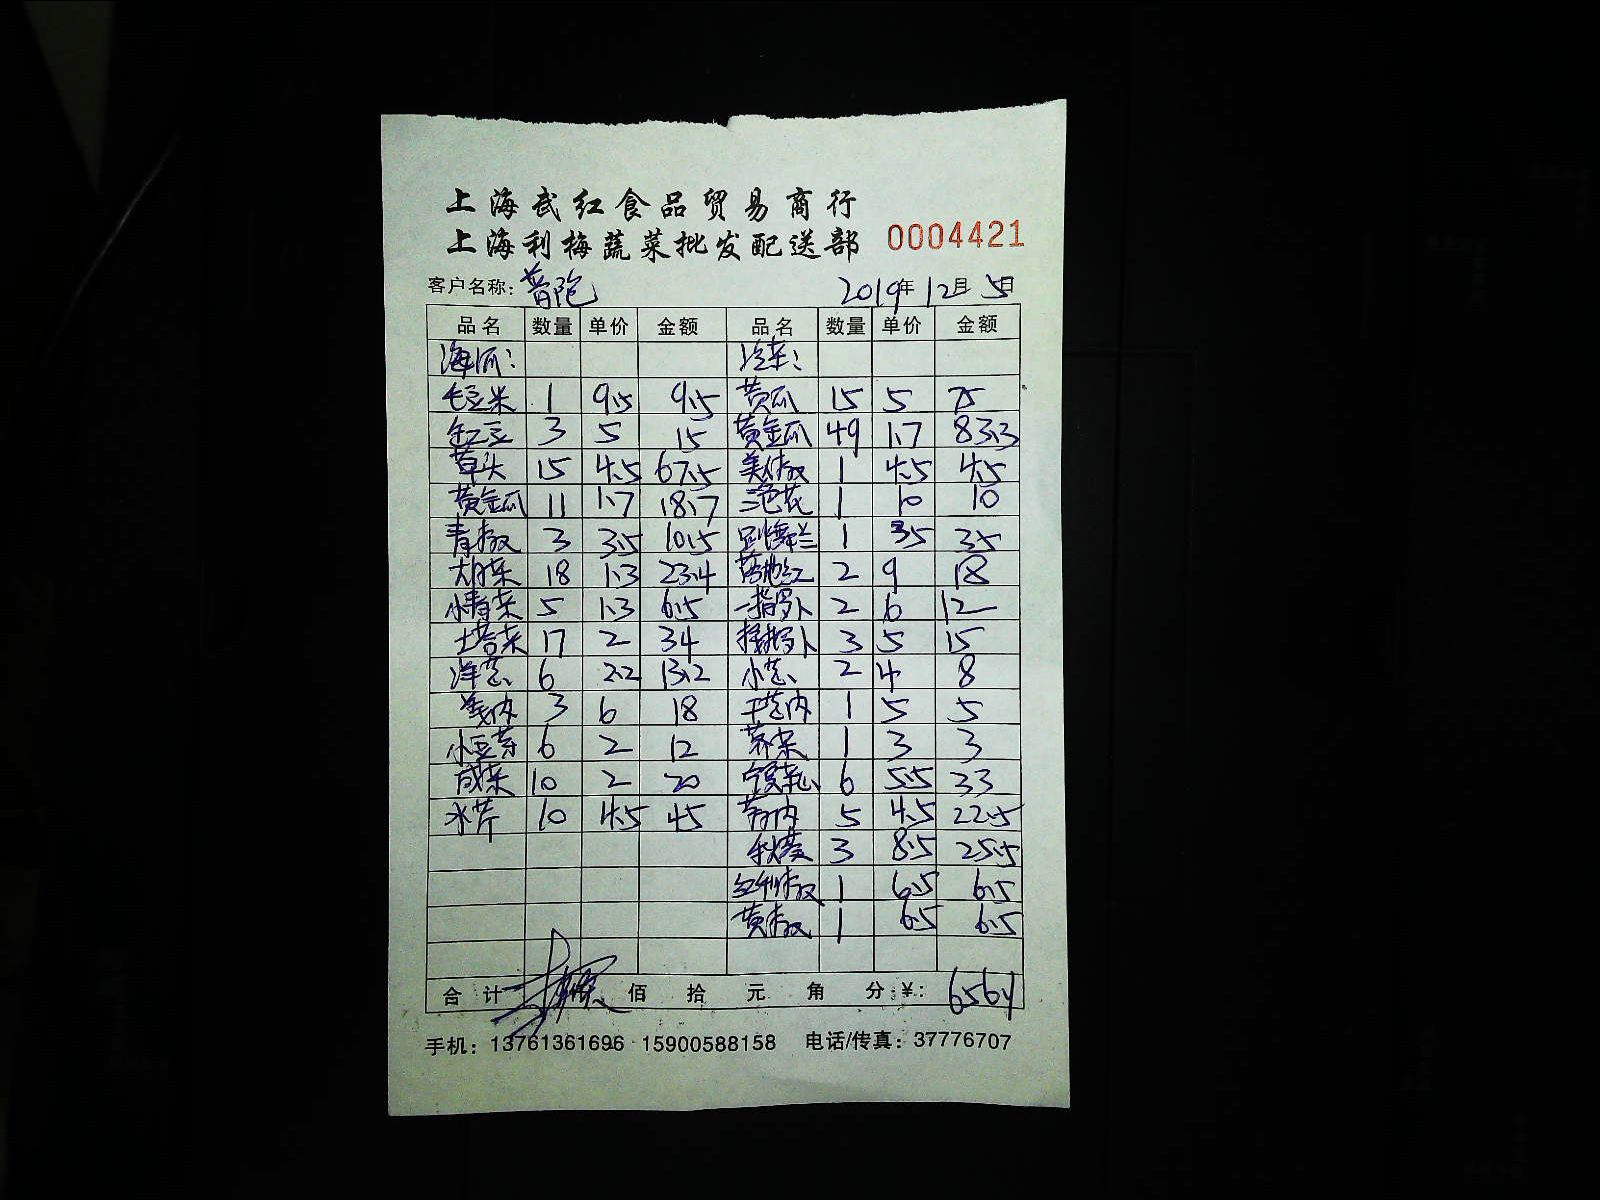 上海武红食品贸易商行
上海利梅蔬菜批发配送部 0004421
客户名称：普陀 2019年12月5日
品名 数量 单价 金额 品名 数量 单价 金额
海派： 冷菜：
毛豆米 1 9.5 9.5 黄瓜 15 5 75
缸豆 3 5 15 黄金瓜 49 1.7 83.3
草头 15 4.5 67.5 美人椒 1 4.5 4.5
黄金瓜 11 1.7 18.7 三色花 1 10 10
青椒 3 3.5 10.5 跳舞兰 1 35 35
大白菜 18 1.3 23.4 落地红 2 9 18
小青菜 5 1.3 6.5 一指罗卜 2 6 12
土塔菜 17 2 34 杨花罗卜 3 5 15
洋葱 6 2.2 13.2 小葱 2 4 8
姜肉 3 6 18 干葱肉 1 5 5
小豆芽 6 2 12 荠菜 1 3 3
咸菜 10 2 20 6 5.5 33
水芹 10 4.5 45 5 4.5 22.5
秋葵 3 8.5 25.5
红利椒 1 6.5 6.5
黄椒 1 6.5 6.5
合计 佰 拾 元 角 分 ¥： 656.1
手机：13761361696 15900588158 电话/传真：37776707